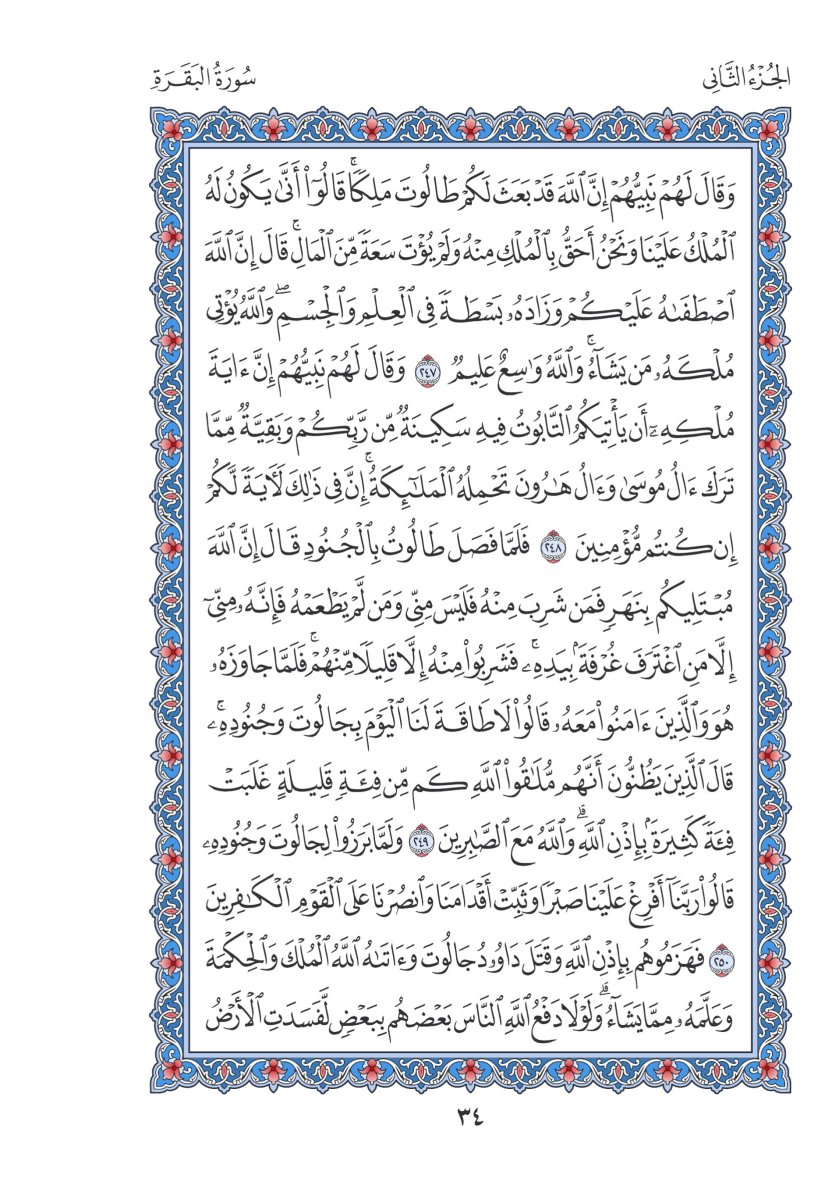 الجُزْءُ الثَّانِي
سُورَةُ البَقَرَةِ
وَقَالَ لَهُمْ نَبِيُّهُمْ إِنَّ ٱللَّهَ قَدْ بَعَثَ لَكُمْ طَالُوتَ مَلِكٗاۚ قَالُوٓاْ أَنَّىٰ يَكُونُ لَهُ
ٱلۡمُلۡكُ عَلَيۡنَا وَنَحۡنُ أَحَقُّ بِٱلۡمُلۡكِ مِنۡهُ وَلَمۡ يُؤۡتَ سَعَةٗ مِّنَ ٱلۡمَالِۚ قَالَ إِنَّ ٱللَّهَ
ٱصۡطَفَىٰهُ عَلَيۡكُمۡ وَزَادَهُۥ بَسۡطَةٗ فِي ٱلۡعِلۡمِ وَٱلۡجِسۡمِۖ وَٱللَّهُ يُؤۡتِي
مُلۡكَهُۥ مَن يَشَآءُۚ وَٱللَّهُ وَٰسِعٌ عَلِيمٞ ٢٤٧ وَقَالَ لَهُمۡ نَبِيُّهُمۡ إِنَّ ءَايَةَ
مُلۡكِهِۦٓ أَن يَأۡتِيَكُمُ ٱلتَّابُوتُ فِيهِ سَكِينَةٞ مِّن رَّبِّكُمۡ وَبَقِيَّةٞ مِّمَّا
تَرَكَ ءَالُ مُوسَىٰ وَءَالُ هَٰرُونَ تَحۡمِلُهُ ٱلۡمَلَٰٓئِكَةُۚ إِنَّ فِي ذَٰلِكَ لَأٓيَةٗ لَّكُمۡ
إِن كُنتُم مُّؤۡمِنِينَ ٢٤٨ فَلَمَّا فَصَلَ طَالُوتُ بِٱلۡجُنُودِ قَالَ إِنَّ ٱللَّهَ
مُبۡتَلِيكُم بِنَهَرٖ فَمَن شَرِبَ مِنۡهُ فَلَيۡسَ مِنِّي وَمَن لَّمۡ يَطۡعَمۡهُ فَإِنَّهُۥ مِنِّيٓ
إِلَّا مَنِ ٱغۡتَرَفَ غُرۡفَةَۢ بِيَدِهِۦۚ فَشَرِبُواْ مِنۡهُ إِلَّا قَلِيلٗا مِّنۡهُمۡۚ فَلَمَّا جَاوَزَهُۥ
هُوَ وَٱلَّذِينَ ءَامَنُواْ مَعَهُۥ قَالُواْ لَا طَاقَةَ لَنَا ٱلۡيَوۡمَ بِجَالُوتَ وَجُنُودِهِۦۚ
قَالَ ٱلَّذِينَ يَظُنُّونَ أَنَّهُم مُّلَٰقُواْ ٱللَّهِ كَم مِّن فِئَةٖ قَلِيلَةٍ غَلَبَتۡ
فِئَةٗ كَثِيرَةَۢ بِإِذۡنِ ٱللَّهِۗ وَٱللَّهُ مَعَ ٱلصَّٰبِرِينَ ٢٤٩ وَلَمَّا بَرَزُواْ لِجَالُوتَ وَجُنُودِهِۦ
قَالُواْ رَبَّنَآ أَفۡرِغۡ عَلَيۡنَا صَبۡرٗا وَثَبِّتۡ أَقۡدَامَنَا وَٱنصُرۡنَا عَلَى ٱلۡقَوۡمِ ٱلۡكَٰفِرِينَ
٢٥٠ فَهَزَمُوهُم بِإِذۡنِ ٱللَّهِ وَقَتَلَ دَاوُۥدُ جَالُوتَ وَءَاتَىٰهُ ٱللَّهُ ٱلۡمُلۡكَ وَٱلۡحِكۡمَةَ
وَعَلَّمَهُۥ مِمَّا يَشَآءُۗ وَلَوۡلَا دَفۡعُ ٱللَّهِ ٱلنَّاسَ بَعۡضَهُم بِبَعۡضٖ لَّفَسَدَتِ ٱلۡأَرۡضُ
٣٤